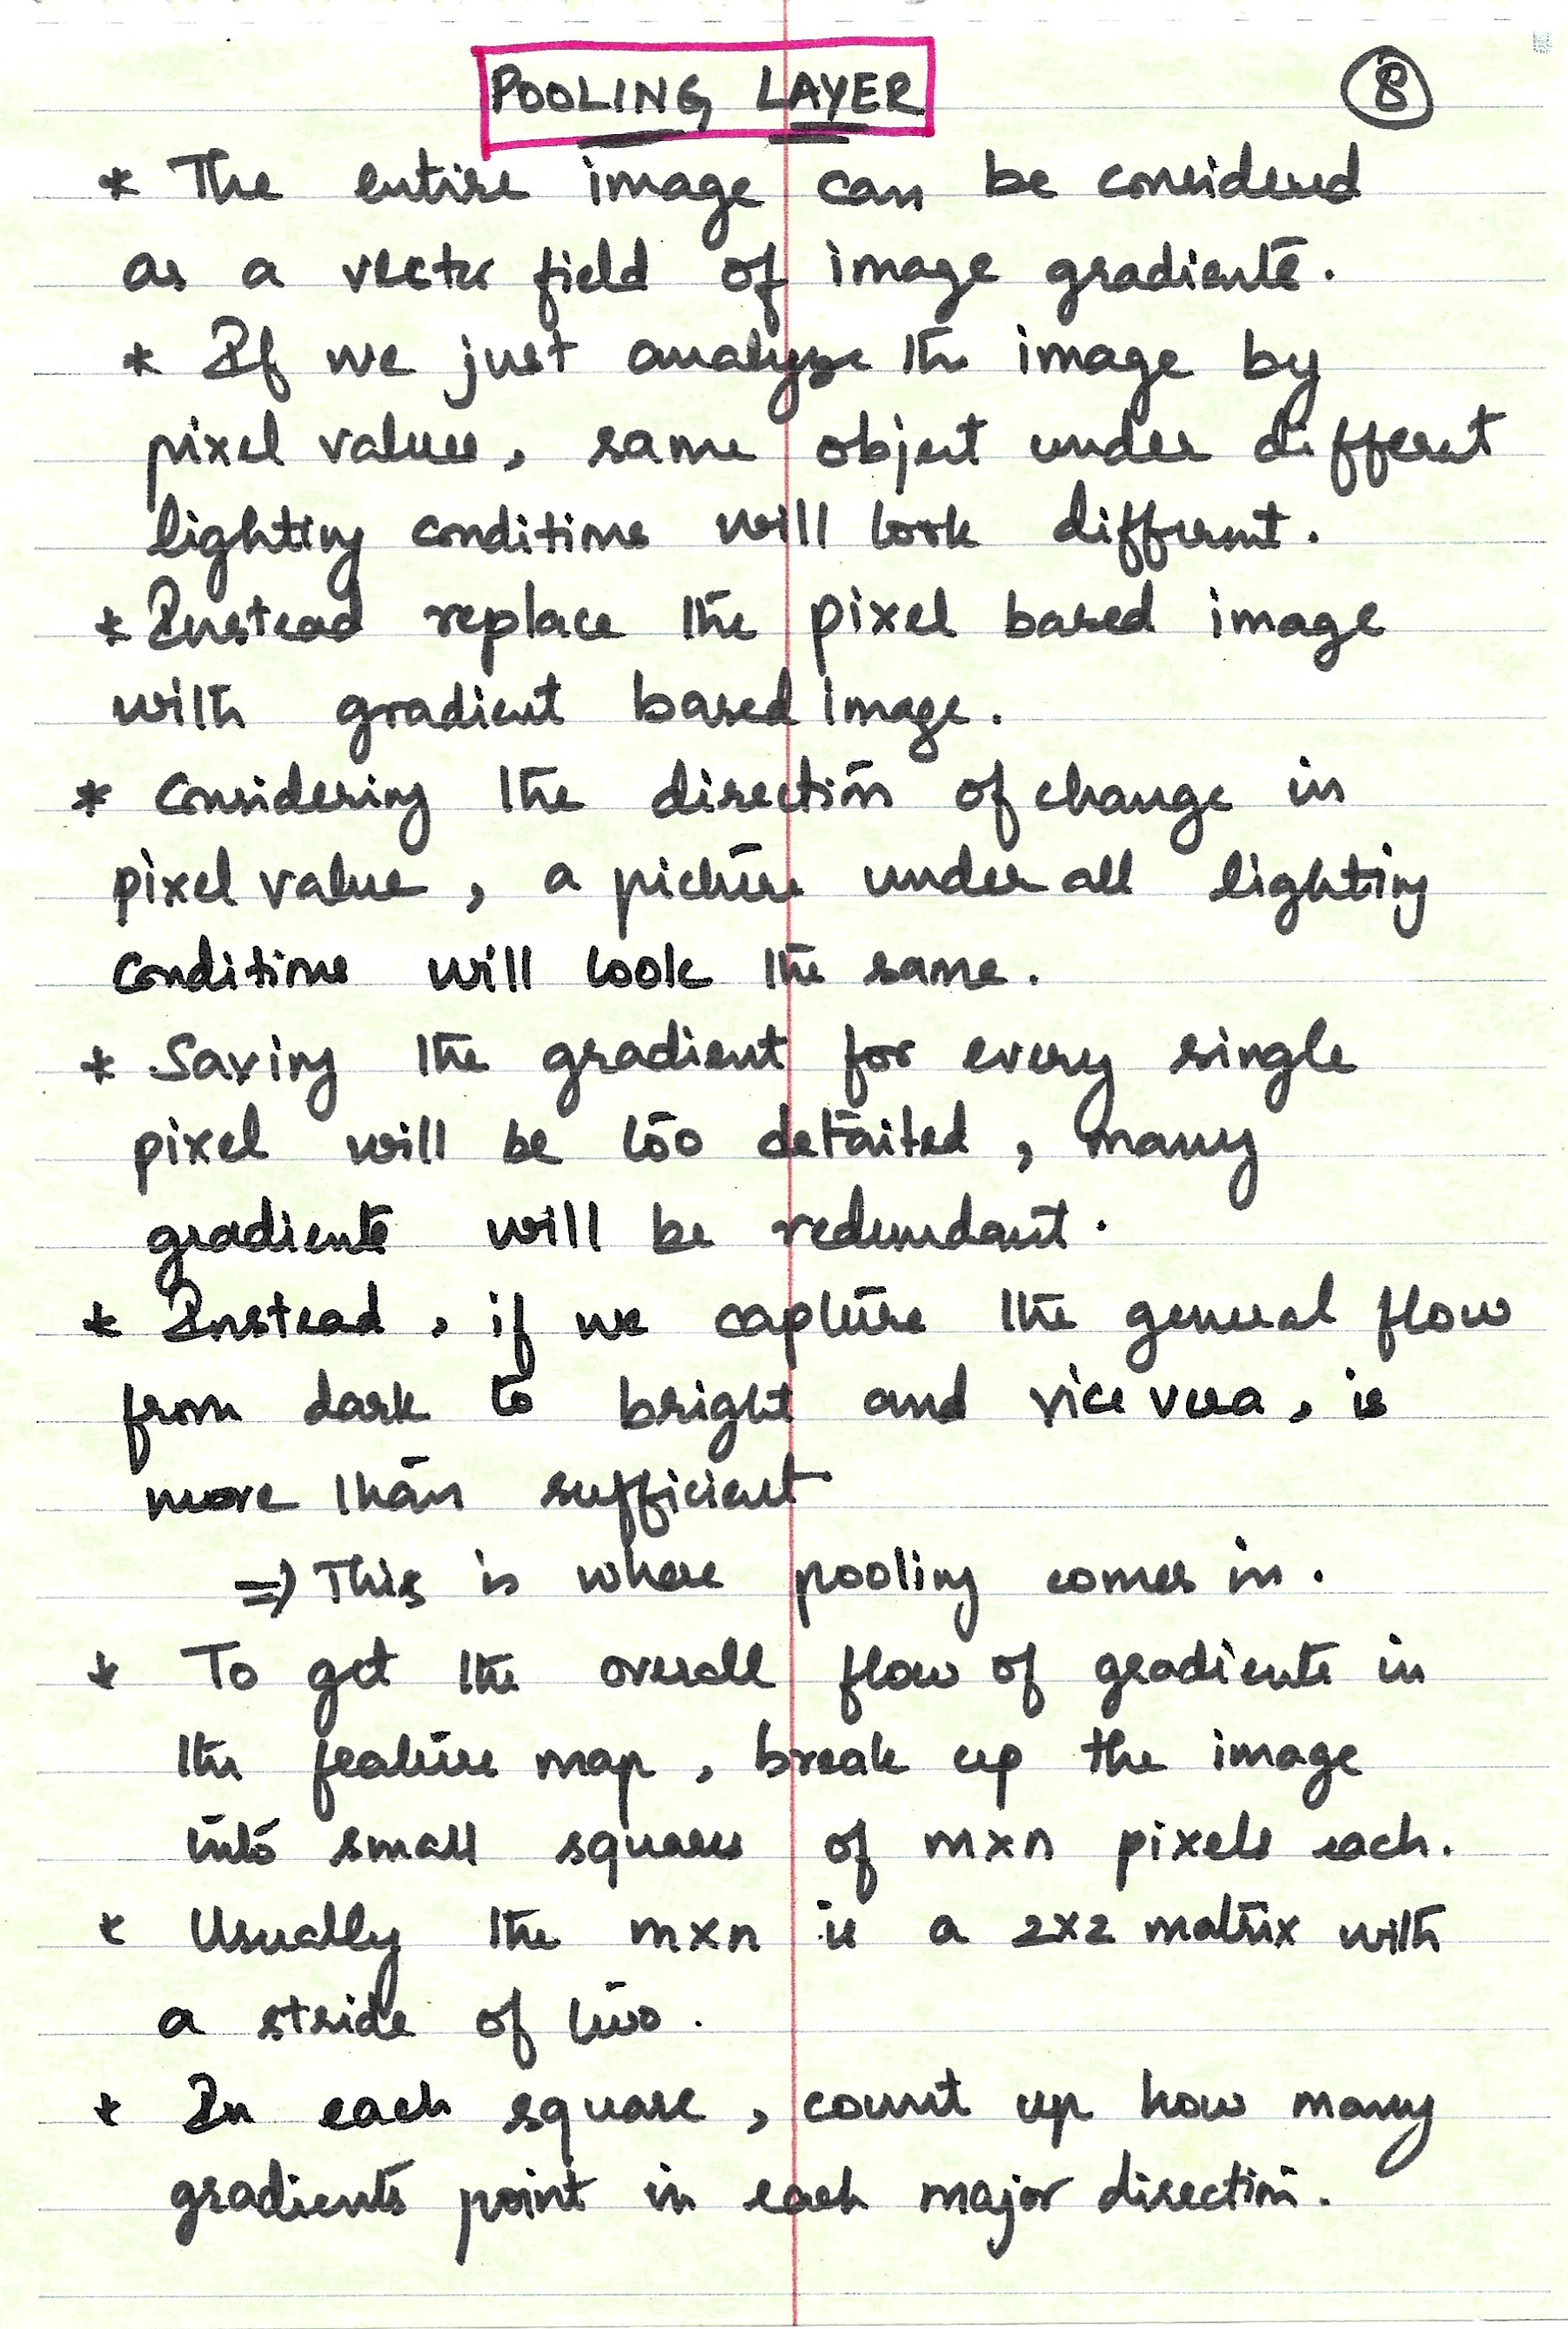 POOLING LAYER
8
* The entire image can be considered
as a vector field of image gradients.
* If we just analyze the image by
pixel values, same object under different
lighting conditions will look different.
* Instead replace the pixel based image
with gradient based image.
* Considering the direction of change in
pixel value, a picture under all lighting
conditions will look the same.
* Saving the gradient for every single
pixel will be too detailed, many
gradients will be redundant.
* Instead, if we capture the general flow
from dark to bright and vice versa, is
more than sufficient
=> This is where pooling comes in.
* To get the overall flow of gradients in
the feature map, break up the image
into small squares of mxn pixels each.
* Usually the mxn is a 2x2 matrix with
a stride of two.
* In each square, count up how many
gradients point in each major direction.